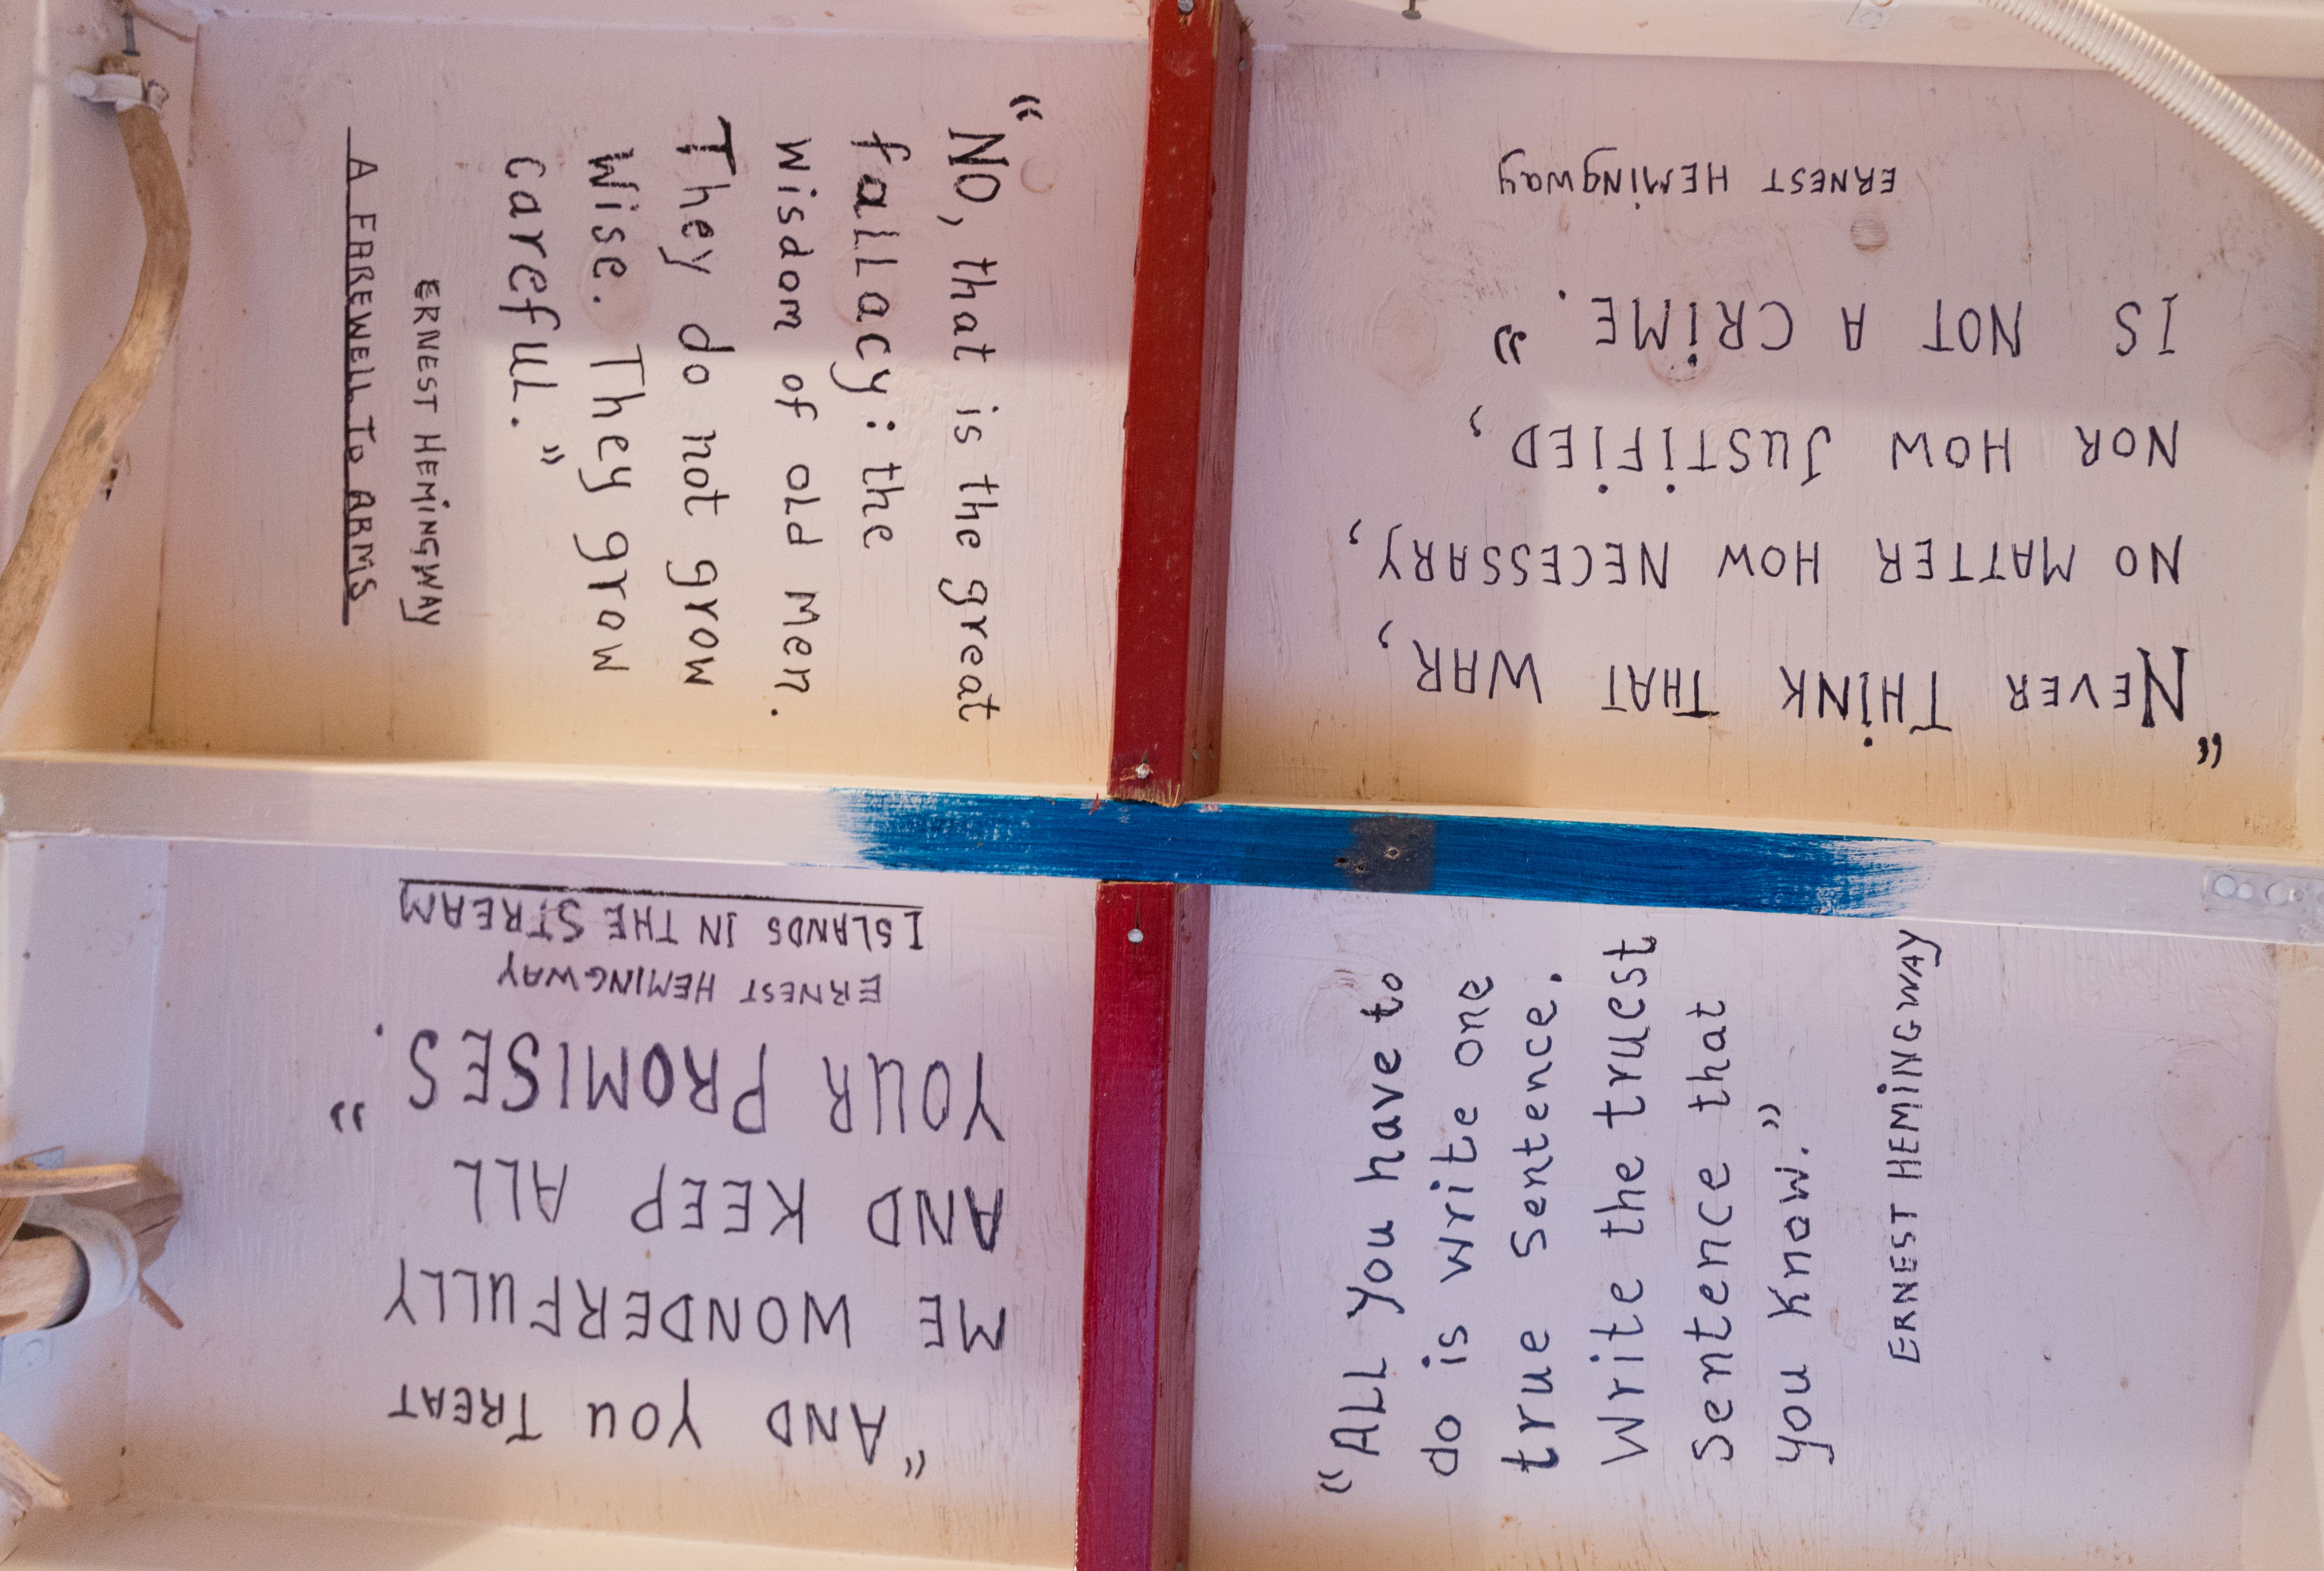 “NO, that is the great
fallacy: the
wisdom of old men.
They do not grow
wise. They grow
careful.”
ERNEST HEMINGWAY
A FAREWELL TO ARMS
“NEVER THINK THAT WAR,
NO MATTER HOW NECESSARY,
NOR HOW JUSTIFIED,
IS NOT A CRIME.”
ERNEST HEMINGWAY
“AND YOU TREAT
ME WONDERFULLY
AND KEEP ALL
YOUR PROMISES.”
ERNEST HEMINGWAY
ISLANDS IN THE STREAM
“ALL you have to
do is write one
true sentence.
Write the truest
sentence that
you know.”
ERNEST HEMINGWAY